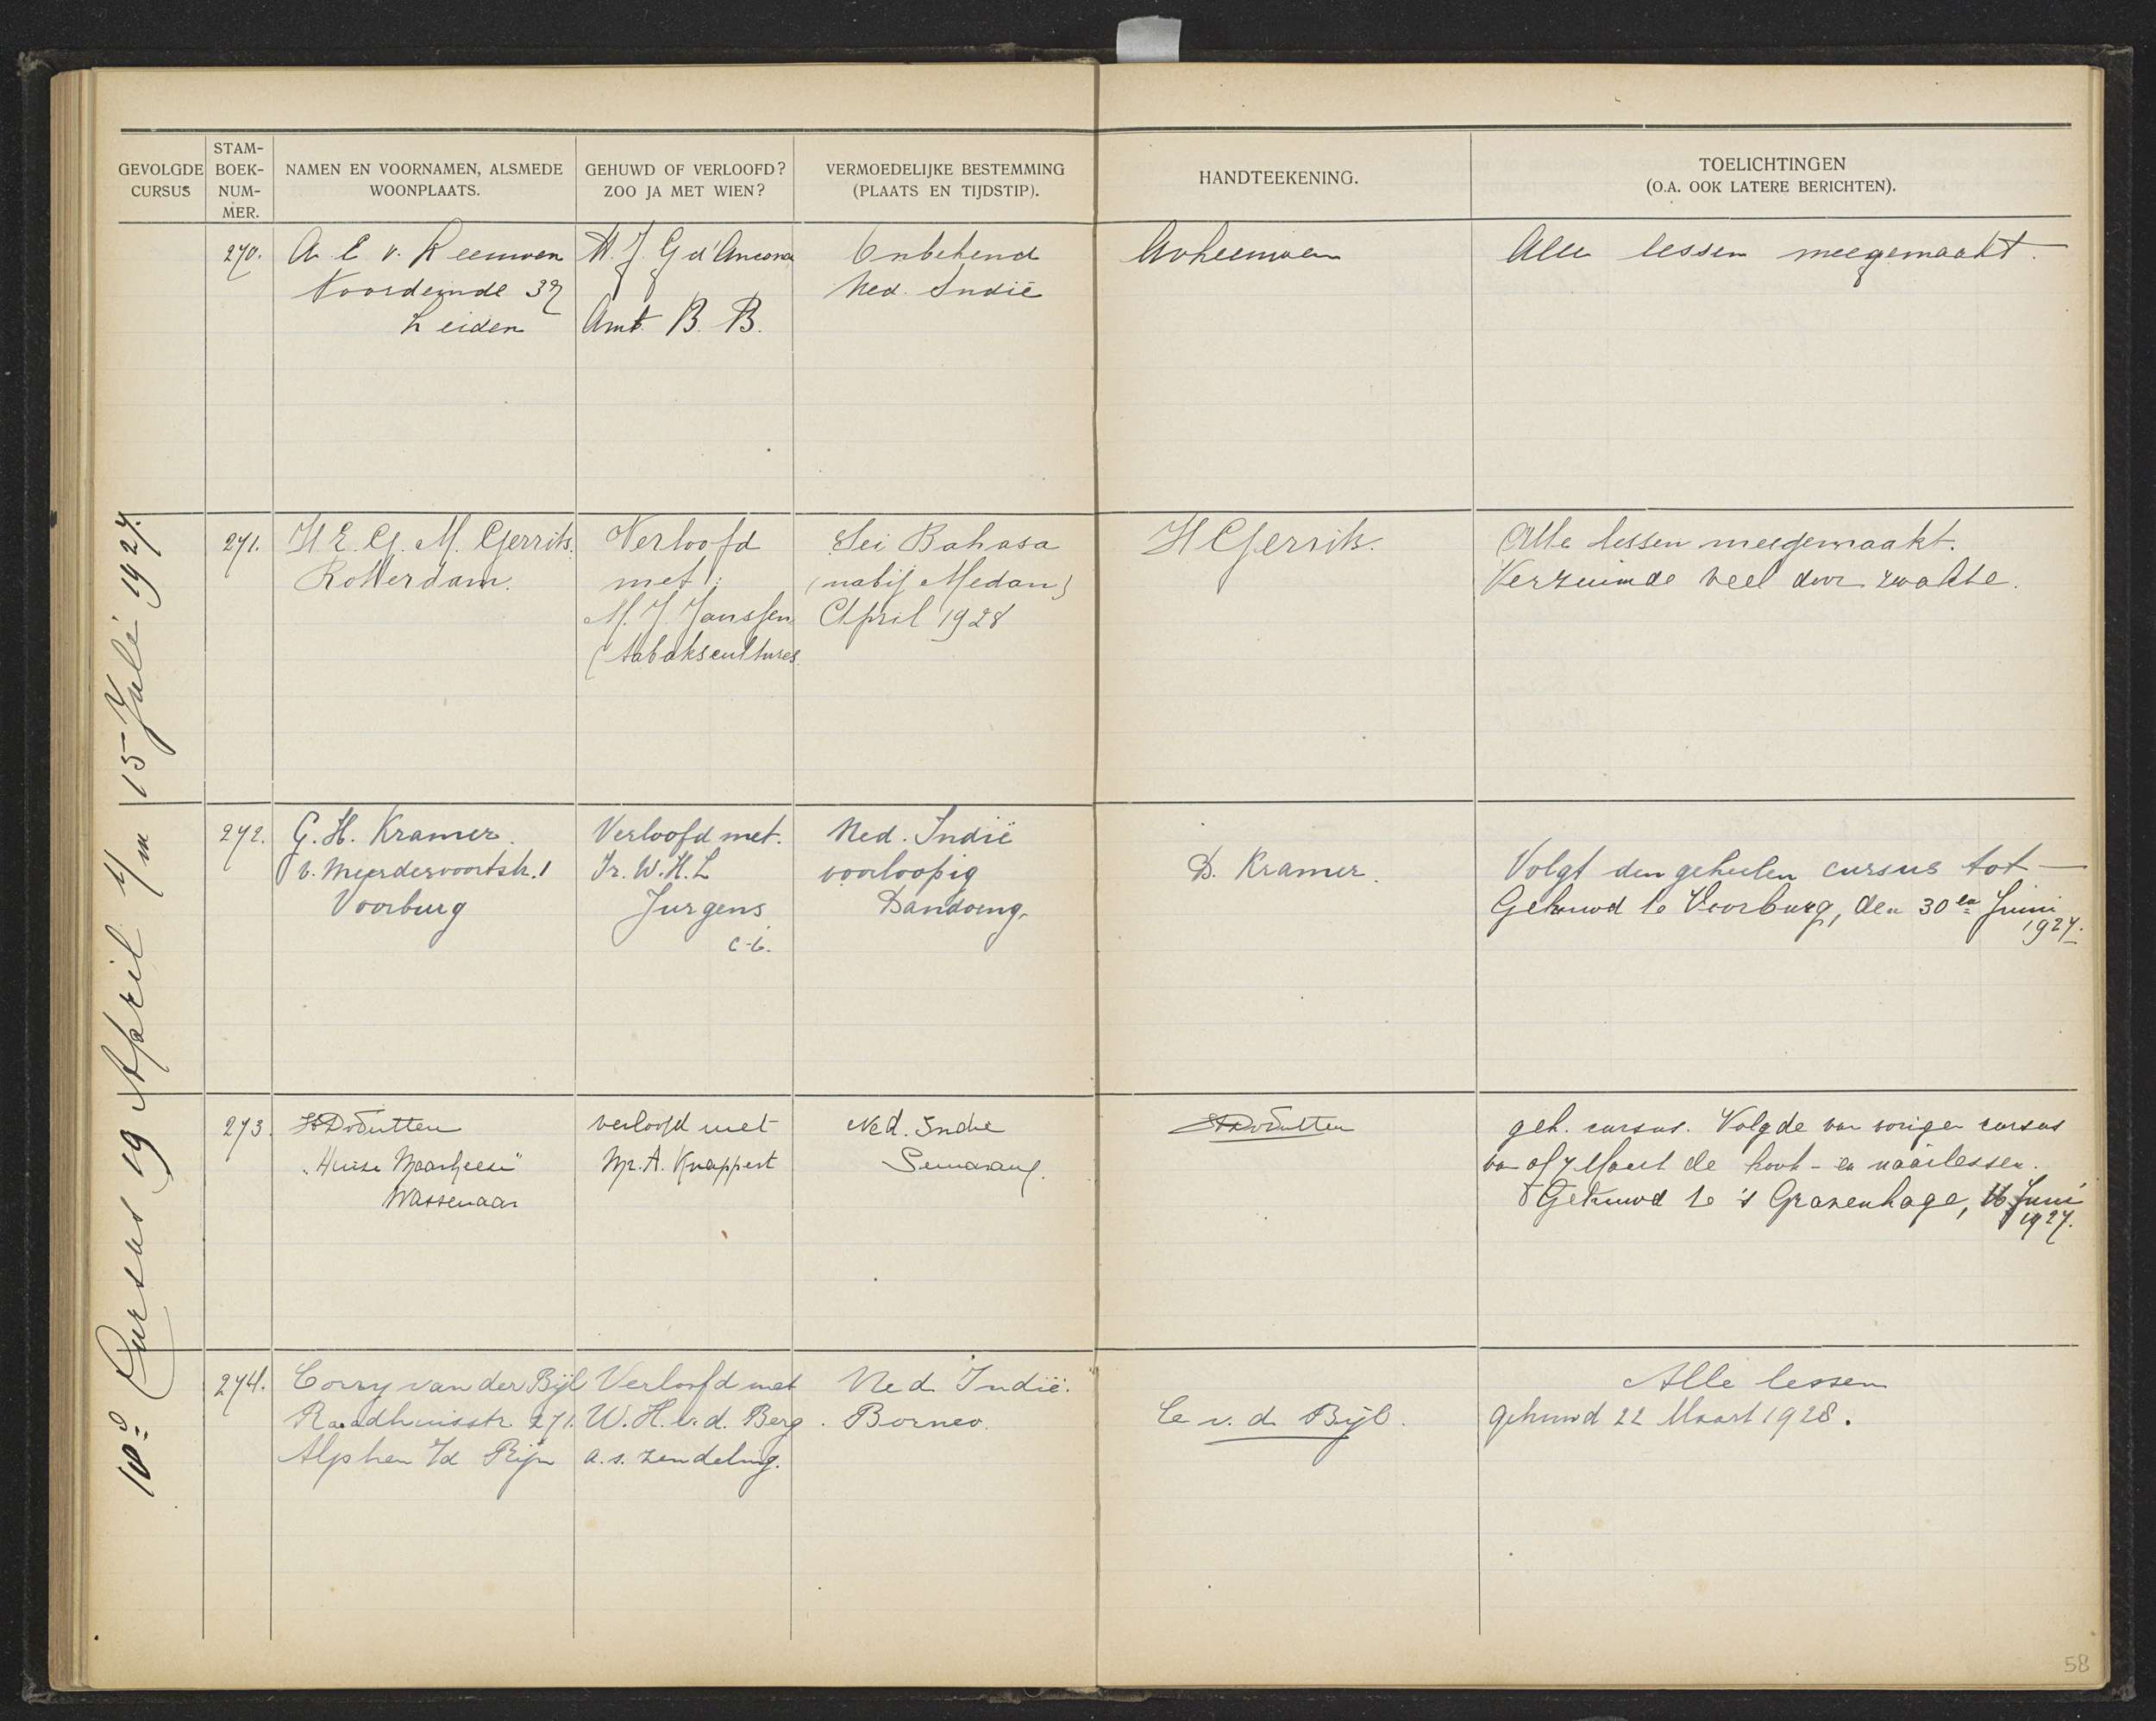 GEVOLGDE CURSUS
STAM-BOEK-NUM-MER.
NAMEN EN VOORNAMEN, ALSMEDE WOONPLAATS.
GEHUWD OF VERLOOFD? ZOO JA MET WIEN?
VERMOEDELIJKE BESTEMMING (PLAATS EN TIJDSTIP).
HANDTEEKENING.
TOELICHTINGEN
(O.A. OOK LATERE BERICHTEN).
10e Cursus 19 April t/m 15 Juli 1927.
270.
A. E v. Leeuwen
Noordeinde 37
Leiden
H. J. G d'Ancona
Amt. B. B.
Onbekend
Ned. Indië
AvLeeuwen
Alle lessen meegemaakt.
271.
H E. G. M. Gerrits.
Rotterdam.
Verloofd
met:
M. J. Janssen
(tabakscultures
Sei Bahasa
(nabij Medan)
April 1928
H Gerrits.
Alle lessen meegemaakt.
Verzuimde veel door zwakte.
272.
G. H. Kramer.
v. Meerdervoortstr. 1
Voorburg
Verloofd met.
Ir. W. H. L
Jurgens
c.i.
Ned. Indië
voorloopig
Bandoeng.
D. Kramer.
Volgt den geheelen cursus tot—
Gehuwd te Voorburg, den 30en Juni
1927.
273.
"Huize Maarheeze"
Wassenaar
verloofd met
Mr. A. Knappert
Ned. Indië
Semarang.
geh. cursus. Volgde van vorigen cursus
van af 7 Maart de kook- en naailessen.
Gehuwd te 's Gravenhage, 16 Juni
1927.
274.
Corry van der Bijl
Raadhuisstr. 271.
Alphen a/d Rijn
Verloofd met
W. H. v. d. Berg.
a.s. zendeling.
Ned. Indië.
Borneo.
C v. d. Bijl.
Alle lessen
gehuwd 22 Maart 1928.
58